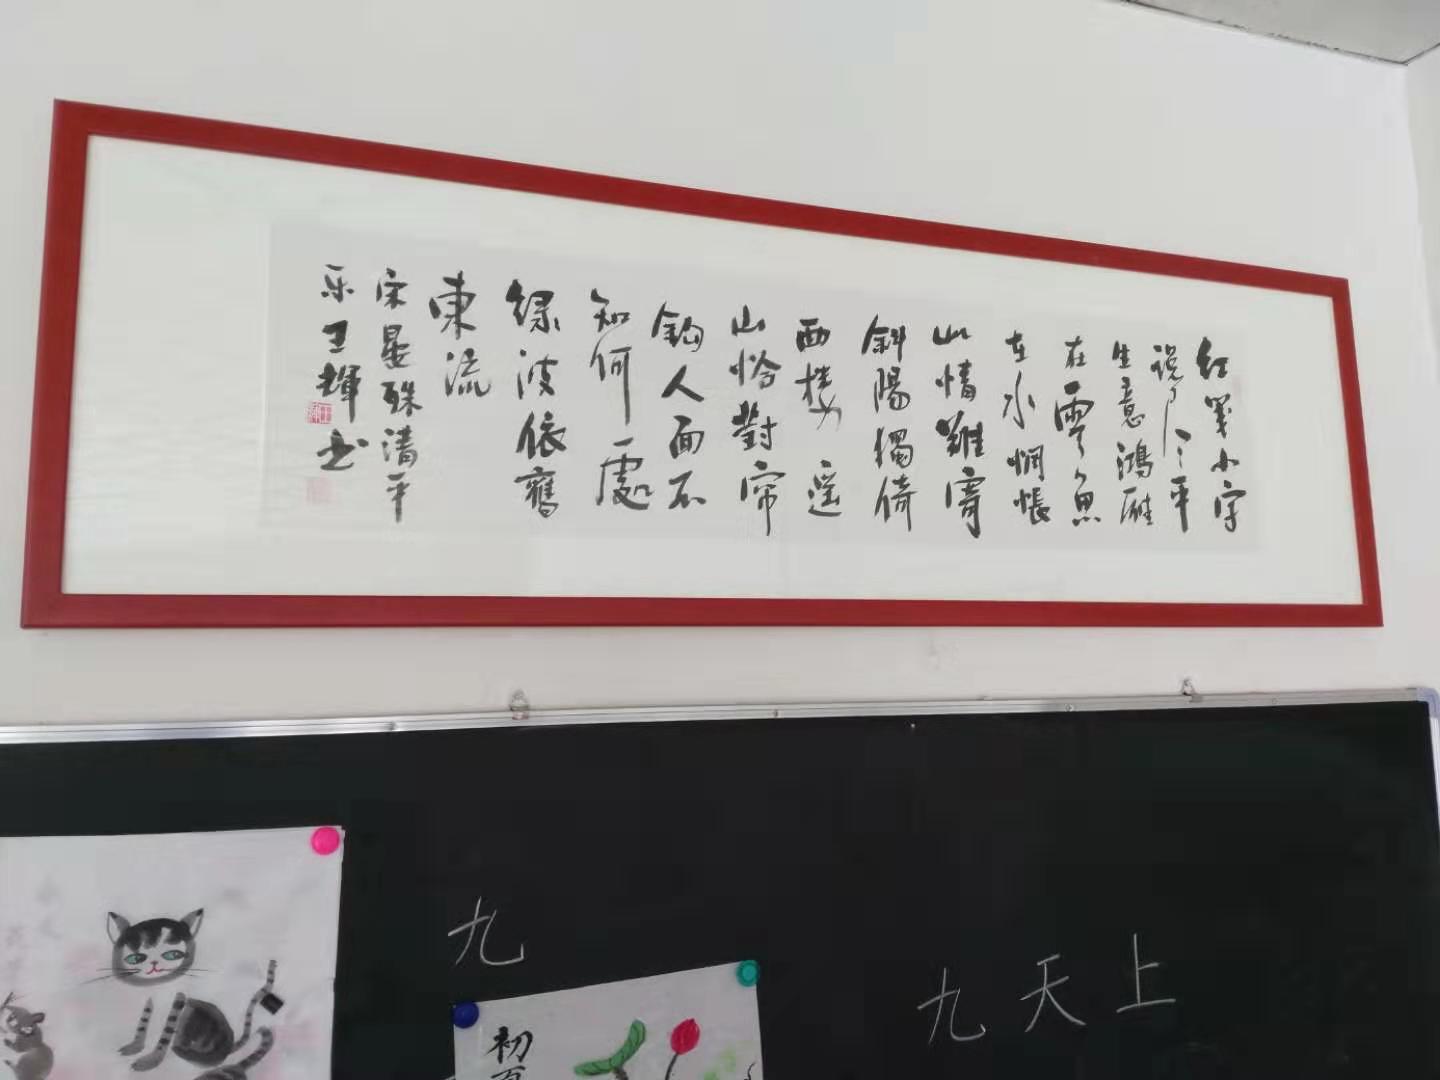 红箋小字
说尽平
生意鴻雁
在雲魚
在水惆悵
此情難寄
斜陽獨倚
西樓 遥
山恰對帘
鈎人面不
知何處
緑波依舊
東流
宋晏殊清平
乐王輝书
九
九天上
初